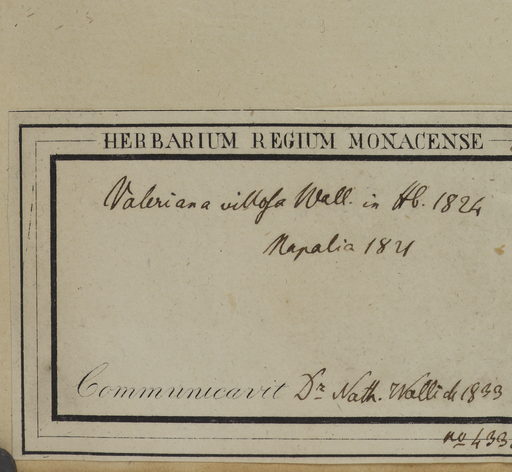 HERBARIUM REGIUM MONACENSE
Valeriana villosa Wall. in Hb. 1824
Napalia 1821
Communicavit Dr Nath. Wallich 1833
no 433